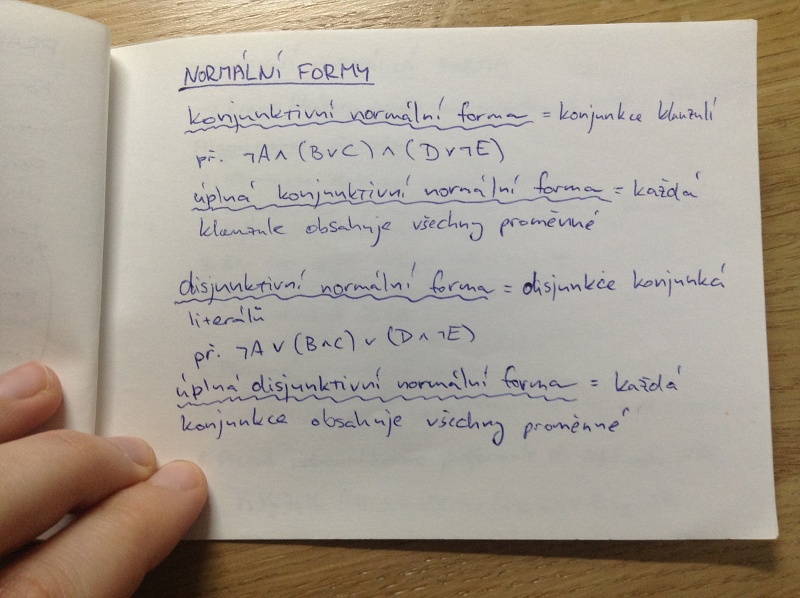 NORMÁLNÍ FORMY
konjunktivní normální forma = konjunkce klauzulí
př. ¬A ∧ (B ∨ C) ∧ (D ∨ ¬E)
úplná konjunktivní normální forma = každá
klauzule obsahuje všechny proměnné
disjunktivní normální forma = disjunkce konjunkcí
literálů
př. ¬A ∨ (B ∧ C) ∨ (D ∧ ¬E)
úplná disjunktivní normální forma = každá
konjunkce obsahuje všechny proměnné